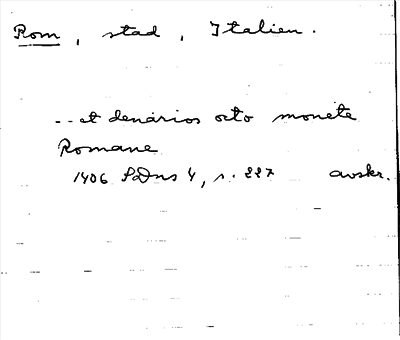 Rom, stad, Italien.
-- et denarios octo monete
Romane
1406 SDns 4, s. 227 avskr.